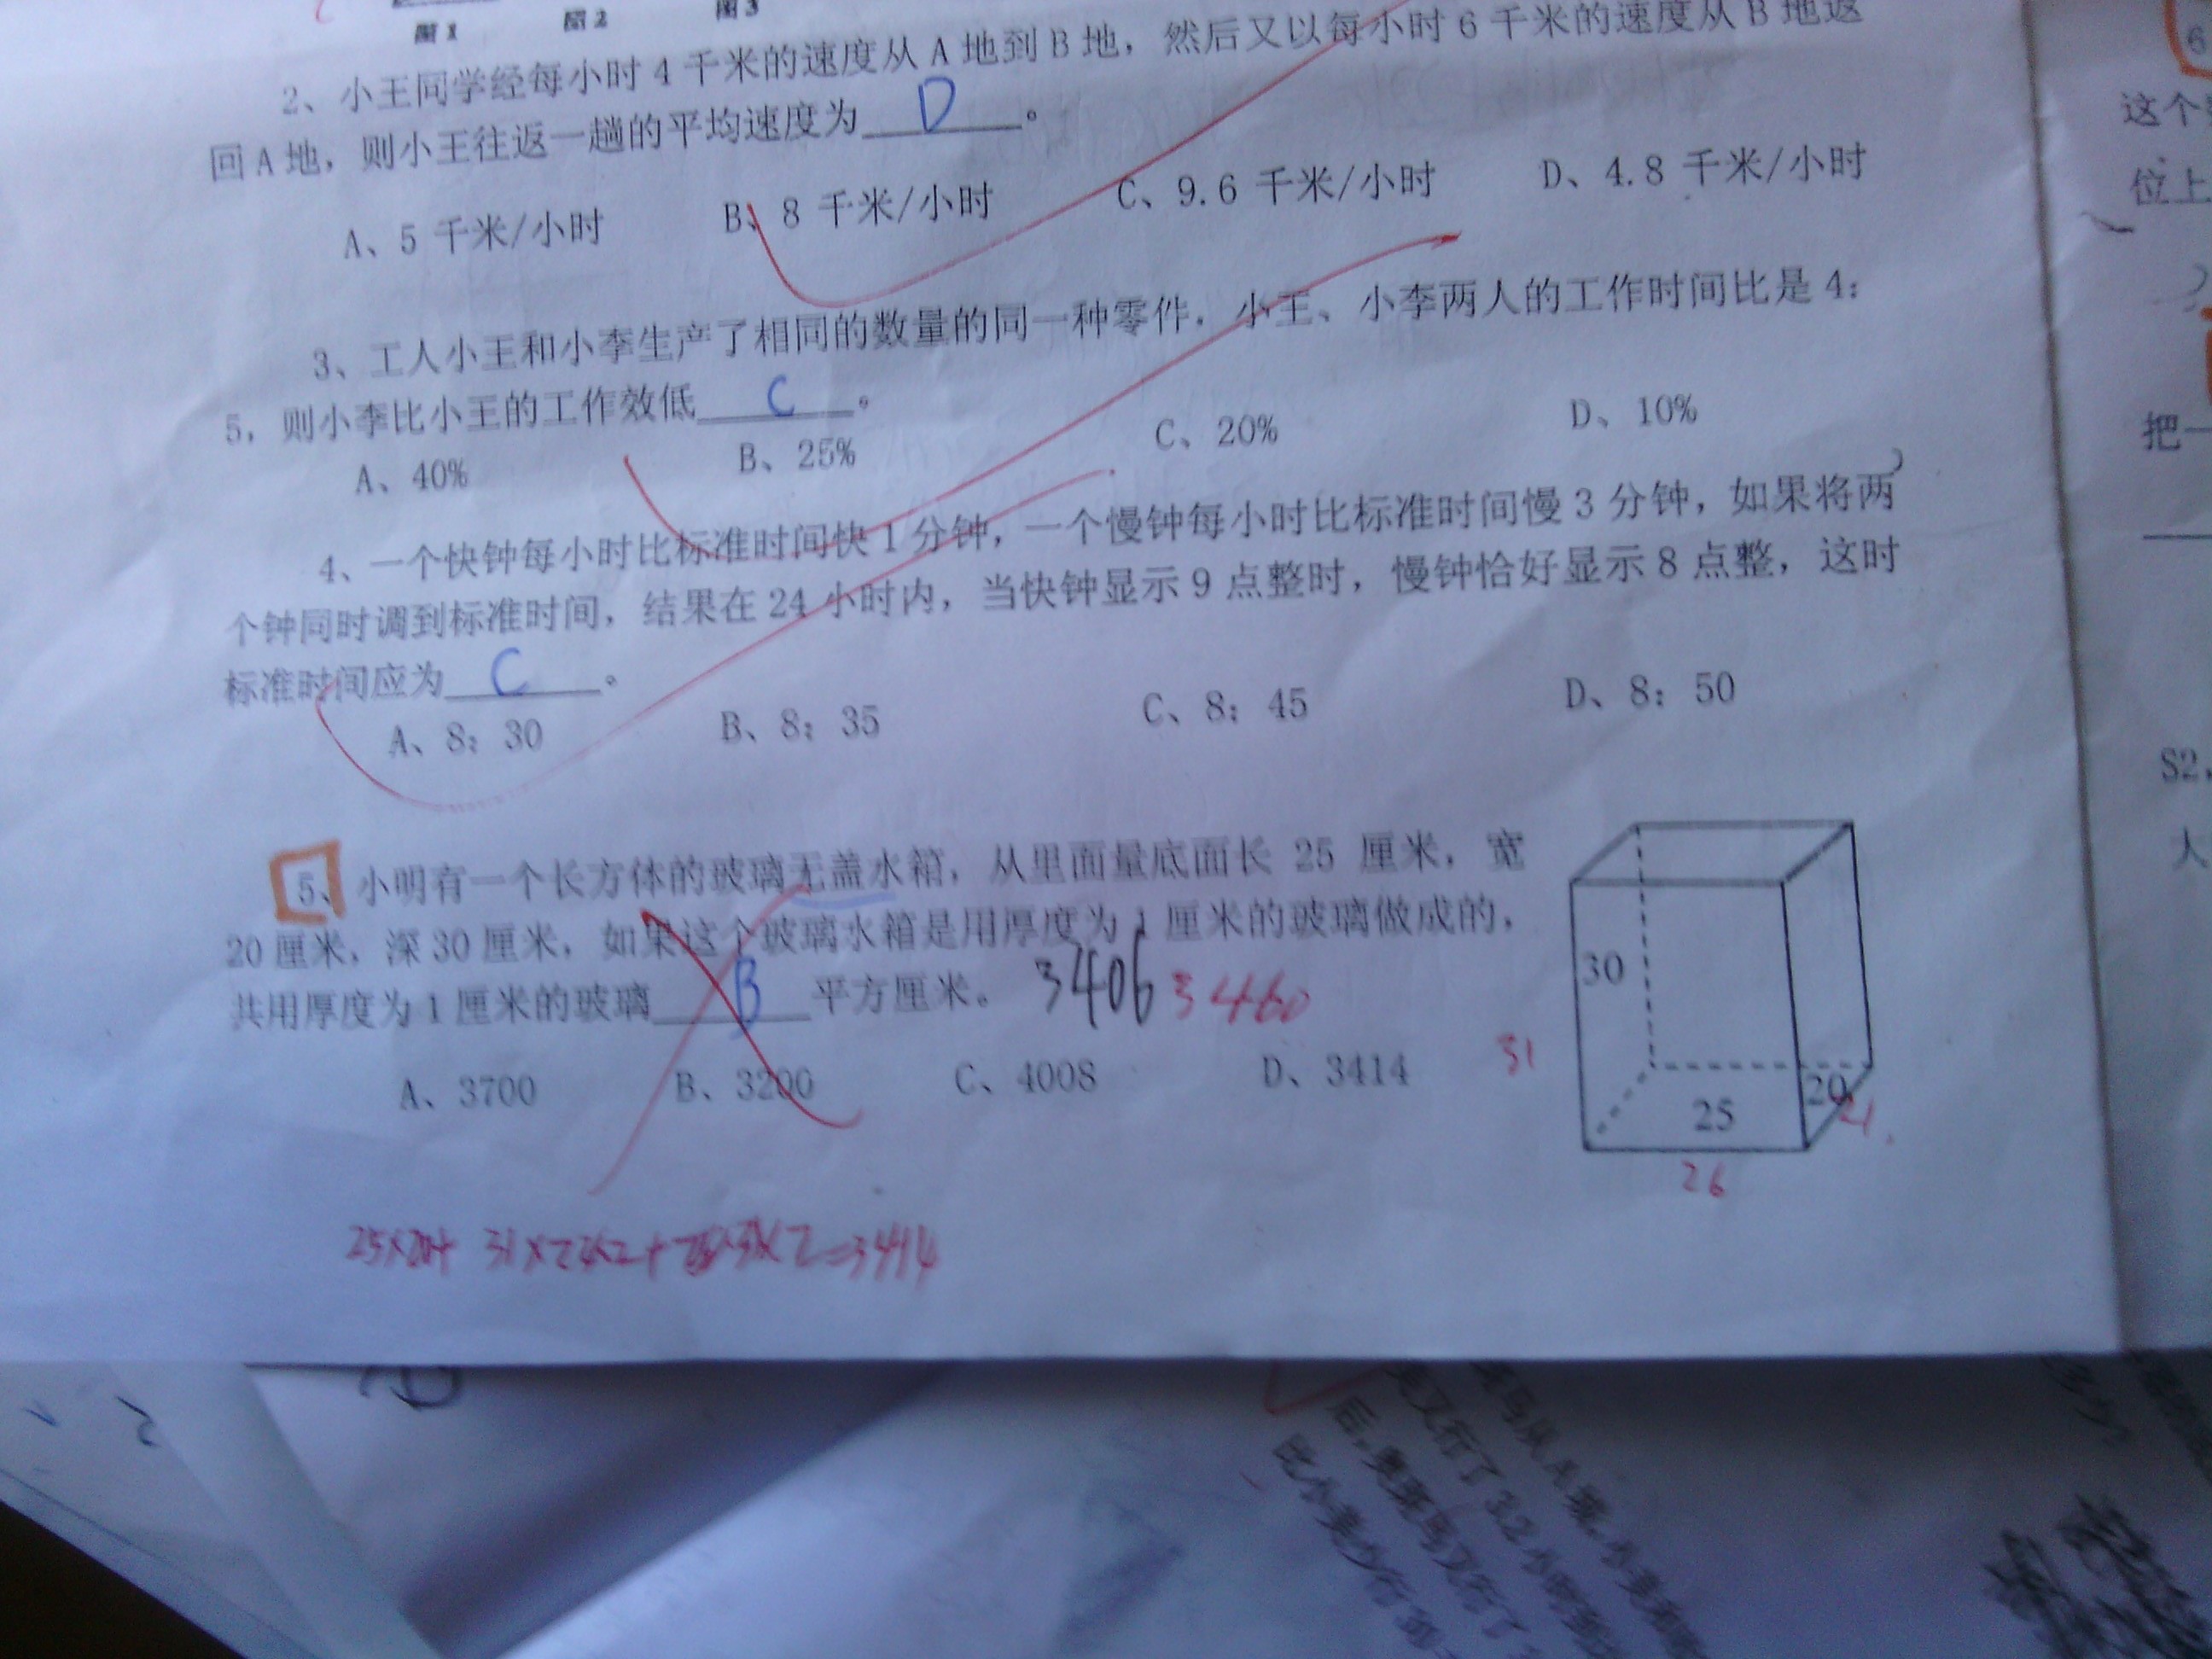 图1 图2 图3
2、小王同学经每小时4千米的速度从A地到B地，然后又以每小时6千米的速度从B地返
回A地，则小王往返一趟的平均速度为 D 。
A、5 千米/小时 B、8 千米/小时 C、9.6 千米/小时 D、4.8 千米/小时
3、工人小王和小李生产了相同的数量的同一种零件，小王、小李两人的工作时间比是4：
5，则小李比小王的工作效低 C 。
A、40% B、25% C、20% D、10%
4、一个快钟每小时比标准时间快1分钟，一个慢钟每小时比标准时间慢3分钟，如果将两
个钟同时调到标准时间，结果在24小时内，当快钟显示9点整时，慢钟恰好显示8点整，这时
标准时间应为 C 。
A、8：30 B、8：35 C、8：45 D、8：50
5、小明有一个长方体的玻璃无盖水箱，从里面量底面长 25 厘米，宽
20厘米，深30厘米，如果这个玻璃水箱是用厚度为1厘米的玻璃做成的，
共用厚度为1厘米的玻璃 B 平方厘米。 3406 3460
A、3700 B、3200 C、4008 D、3414
30
31
25
20
21
26
6
这个
位上
把一
S2,
大